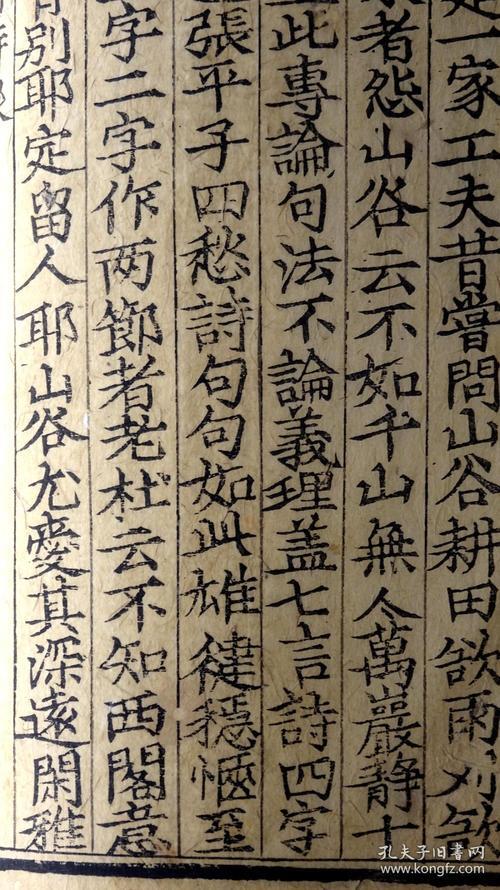 一家工夫昔嘗問山谷耕田欲雨刈欲
者怨山谷云不如千山無人萬巖静十
此專論句法不論義理盖七言詩四字
張平子四愁詩句句如此雄徤穩愜至
字二字作两節者老杜云不知西閣意
別耶定留人耶山谷尤愛其深逺閑雅
孔夫子旧書网
www.kongfz.com